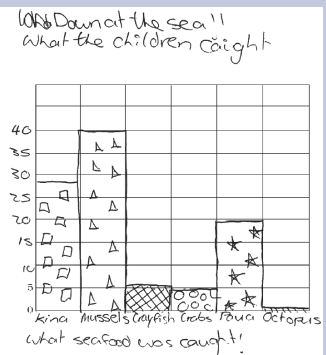 Down at the sea!!
What the children caight
40
35
30
25
20
15
10
5
0
Kina Mussels Crayfish Crabs Paua Octopus
What seafood was caught!